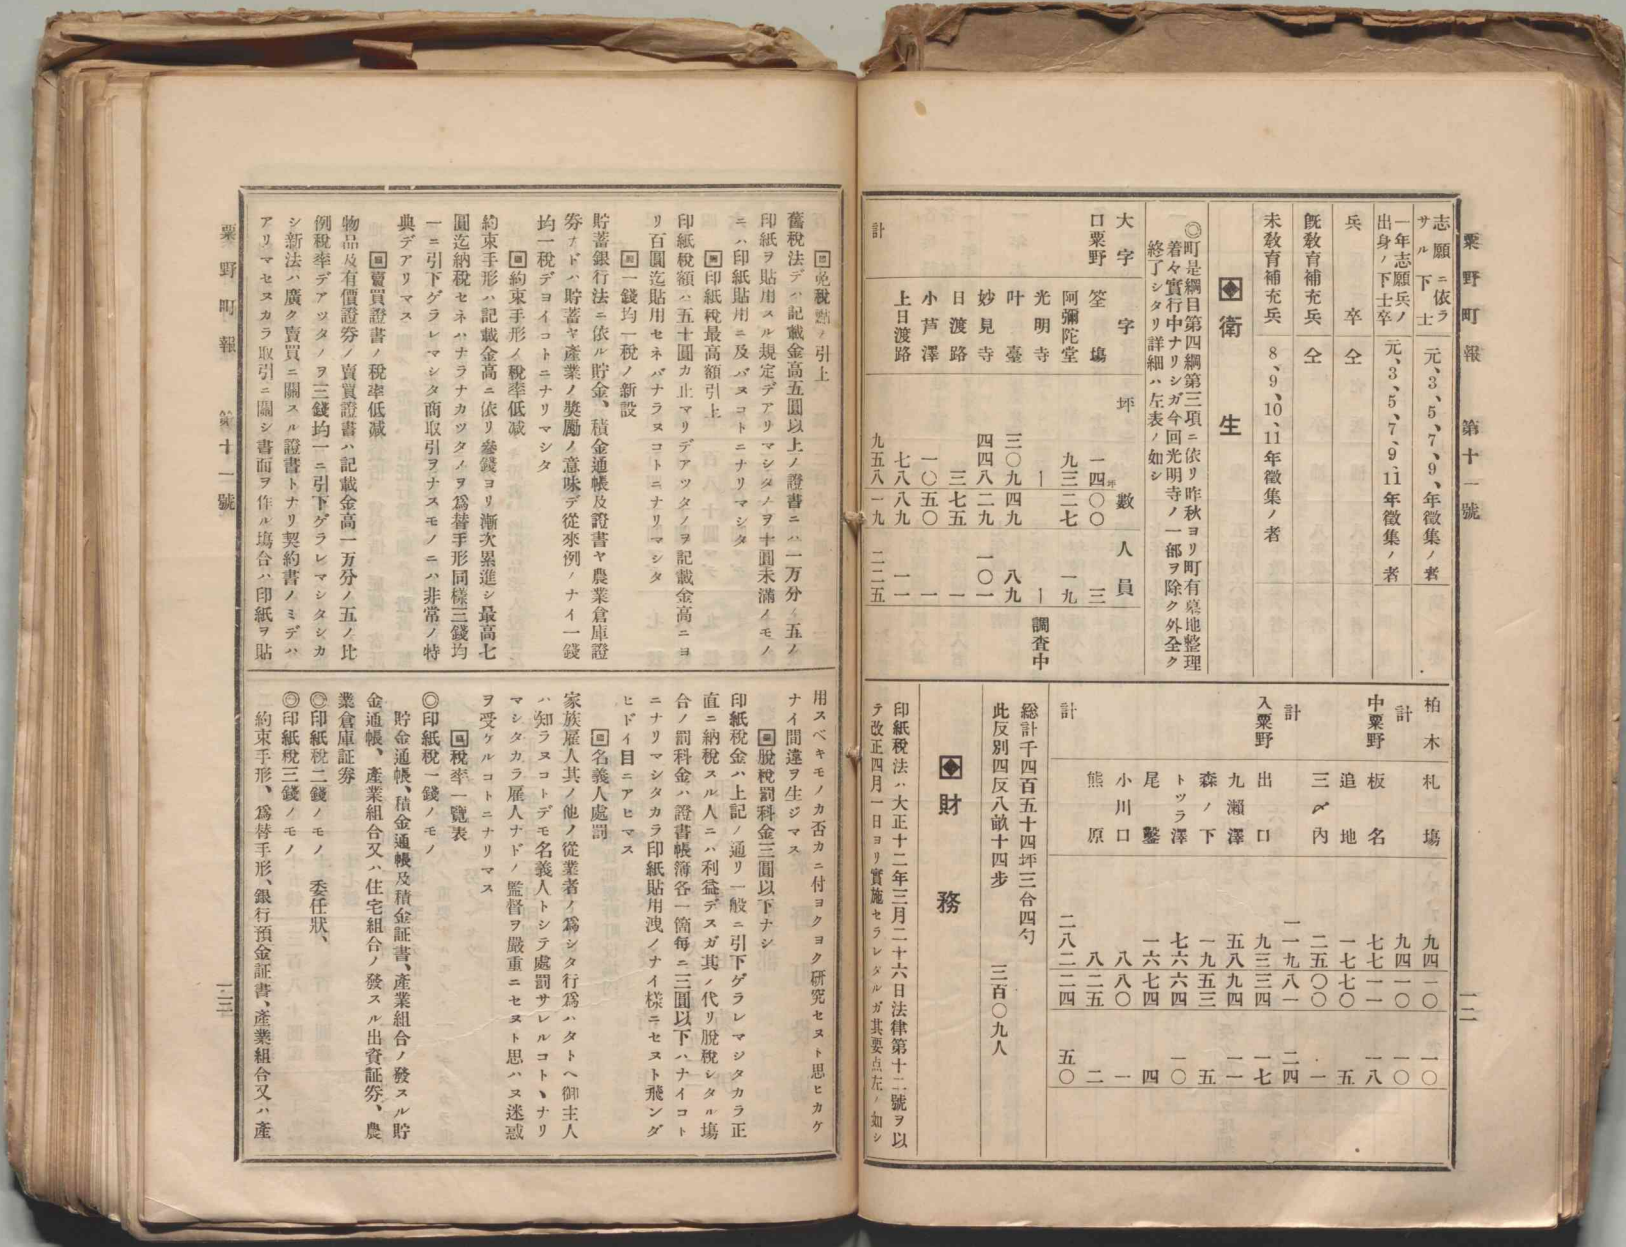 粟野町報　第十一號　一二
志願ニ依ラサル下士　元、3、5、7、9、年徵集ノ者
一年志願兵ノ出身ノ下士卒　元、3、5、7、9、11年徵集ノ者
兵卒　仝
既敎育補充兵　仝
未敎育補充兵　8、9、10、11年徵集ノ者
衛生
◎町是綱目第四綱第三項ニ依リ昨秋ヨリ町有墓地整理
着々實行中ナリシガ今回光明寺ノ一部ヲ除ク外全ク
終了シタリ詳細ハ左表ノ如シ
大字　字　坪數　人員
口粟野　筌塲　一四坪〇〇　三
阿彌陀堂　九三二七　一九
光明寺　ー　ー　調査中
叶臺　三〇九四九　八九
妙見寺　四四八二九　一〇一
日渡路　三七五　一
小芦澤　一〇五〇　一
上日渡路　七八八九　一一
計　九五八一九　二二五
柏木　札塲　九四一〇　一〇
計　九四一〇　一〇
中粟野　板名　七七一一　一八
追地　一七七〇　五
三〆內　二五〇〇　一
計　一一九八一　二四
入粟野　出口　九三三四　一七
九瀨澤　五八九四　一一
森ノ下　一九五三　五
トツラ澤　七六六四　一〇
尾鑿　一六七四　四
小川口　八八〇　一
熊原　八二五　二
計　二八二二四　五〇
総計千四百五十四坪三合四勺　三百〇九人
此反別四反八畝十四步
財務
印紙稅法ハ大正十二年三月二十六日法律第十二號ヲ以
テ改正四月一日ヨリ實施セラレタルガ其要点左ノ如シ
免稅點ノ引上
舊稅法デハ記載金高五圓以上ノ證書ニハ一万分ノ五ノ
印紙ヲ貼用スル規定デアリマシタノヲ十圓未滿ノモノ
ニハ印紙貼用ニ及バヌコトニナリマシタ
印紙稅最高額引上
印紙稅額ハ五十圓カ止マリデアツタノヲ記載金高ニヨ
リ百圓迄貼用セネバナラヌコトニナリマシタ
一錢均一稅ノ新設
貯蓄銀行法ニ依ル貯金、積金通帳及證書ヤ農業倉庫證
劵ナドハ貯蓄ヤ產業ノ奬勵ノ意味デ從來例ノナイ一錢
均一稅デヨイコトニナリマシタ
約束手形ノ稅率低减
約束手形ハ記載金高ニ依リ叄錢ヨリ漸次累進シ最高七
圓迄納稅セネハナラナカツタノヲ爲替手形同樣三錢均
一ニ引下ゲラレマシタ商取引ヲナスモノニハ非常ノ特
典デアリマス
賣買證書ノ稅率低减
物品及有價證劵ノ賣買證書ハ記載金高一万分ノ五ノ比
例稅率デアツタノヲ三錢均一ニ引下ゲラレマシタシカ
シ新法ハ廣ク賣買ニ關スル證書トナリ契約書ノミデハ
アリマセヌカラ取引ニ關シ書面ヲ作ル塲合ハ印紙ヲ貼
用スベキモノカ否カニ付ヨクヨク硏究セヌト思ヒカケ
ナイ間違ヲ生ジマス
脫稅罰科金三圓以下ナシ
印紙稅金ハ上記ノ通リ一般ニ引下ゲラレマシタカラ正
直ニ納稅スル人ニハ利益デスガ其ノ代リ脫稅シタル塲
合ノ罰科金ハ證書帳簿各一箇每ニ三圓以下ハナイコト
ニナリマシタカラ印紙貼用洩ノナイ樣ニセヌト飛ンダ
ヒドイ目ニアヒマス
名義人處罰
家族雇人其ノ他ノ從業者ノ爲シタ行爲ハタトヘ御主人
ハ知ラヌコトデモ名義人トシテ處罰サレルコトヽナリ
マシタカラ雇人ナドノ監督ヲ嚴重ニセヌト思ハヌ迷惑
ヲ受ケルコトニナリマス
稅率一覽表
◎印紙稅一錢ノモノ
貯金通帳、積金通帳及積金証書、產業組合ノ發スル貯
金通帳、產業組合又ハ住宅組合ノ發スル出資証劵、農
業倉庫証劵
◎印紙稅二錢ノモノ　委任狀、
◎印紙稅三錢ノモノ
約束手形、爲替手形、銀行預金証書、產業組合又ハ產
粟野町報　第十一號　一三